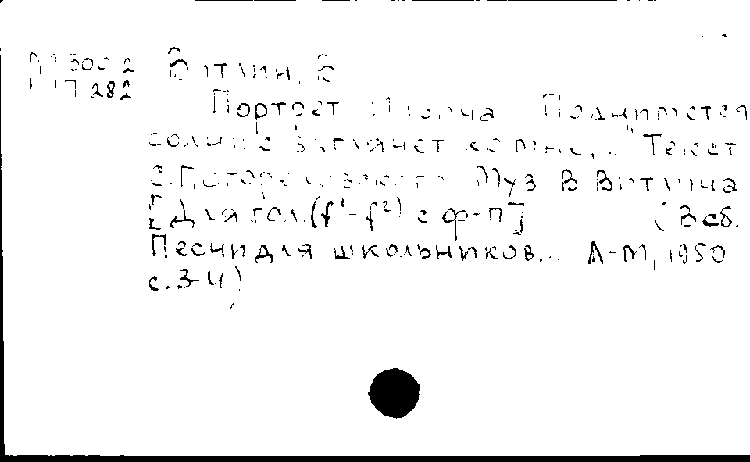 М 300 2 Витлин, В
П 282
Портрет Ильича "Поднимется
солнце заглянет ко мне,.." Текст
С. Погореловского Муз В Витлина
[Для гол. (f¹-f²) с ф-п] (В сб.
Песни для школьников... Л-М, 1950
с.3-4)